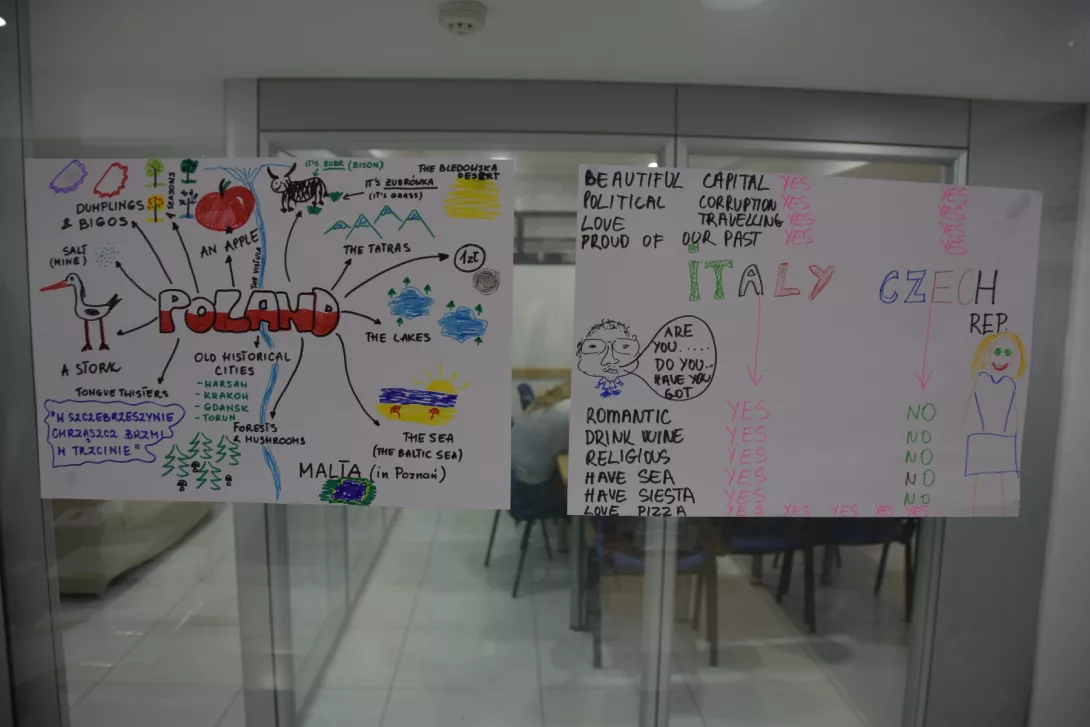 DUMPLINGS
& BIGOS
4 SEASONS
AN APPLE
IT'S ŻUBR (BISON)
IT'S ŻUBRÓWKA
(IT'S GRASS)
THE BLEDOWSKA
DESERT
SALT
(MINE)
THE TATRAS
1zł
POLAND
A STORK
THE LAKES
OLD HISTORICAL
CITIES
- WARSAW
- KRAKOW
- GDAŃSK
- TORUŃ
TONGUE TWISTERS
"W SZCZEBRZESZYNIE
CHRZĄSZCZ BRZMI
W TRZCINIE"
FORESTS
& MUSHROOMS
THE SEA
(THE BALTIC SEA)
MALTA (in Poznań)
BEAUTIFUL CAPITAL YES YES
POLITICAL CORRUPTION YES YES
LOVE TRAVELLING YES YES
PROUD OF OUR PAST YES YES
ITALY CZECH
REP.
ARE
YOU.....
DO YOU..
HAVE YOU
GOT
ROMANTIC YES NO
DRINK WINE YES NO
RELIGIOUS YES NO
HAVE SEA YES NO
HAVE SIESTA YES NO
LOVE PIZZA YES YES YES YES YES